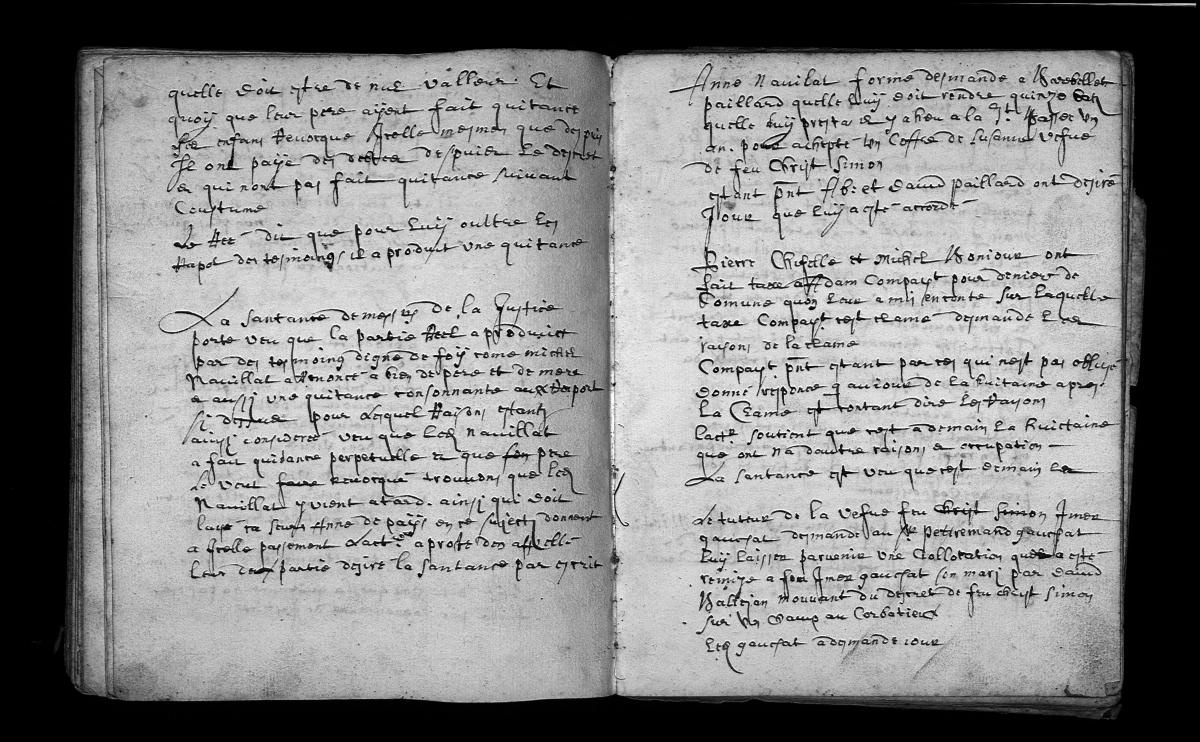 quelle doit estre de nul valleur. Et
quoy que leur pere ayent fait quitance
ses enfans Revocque Icelle mesmes que despuis
Ils ont paÿe des debtes despuier le descret
et qui nont pas fait quitance suivant
Coustume
Le Acté dit que pour luy oultre les
Rapol des tesmoings il a produit une quitance
La santance de mess rs de la Justice
porte veu que la partie Acel a produict
par des tesmoing digne de foy come michel
Navillat a Renoncé a bien de pere et de mere
et aussi une quitance consonnante aux Raport
si dessus pour Lesquel Raisons estant
ainsi considerée veu que Led Navillat
a fait quidance perpetuelle et que son pere
le veut faire Revocqué trouvons que led
Navillat y vient a tard. ainsi qui doit
Laye sa seur Anne de païs en ce suject donnent
a Icelle passement Lacté a proteste
Leur partie desire la santance par escrit
Anne Navilat forme desmande a
paillard quelle luy doit rendre quinze batz
quelle luy presta il y aheu a la St un
an. pour achepte un Coffre de Susanne vefve
de feu Christ Simon
estant pnt Ab: et David paillard ont desiré
Jour que luy a esté accordé
Pierre et Michel Bonjour ont
fait taxe Adam Compayt pour denier de
Comune quon leur a mis en conte sur laquelle
taxe Compayt cest clame desmande les
raisons de la clame
Compayt pnt estant par ces qui nest pas obligé
donné responce qau jour de la huitaine apres
La Clame est contant dire les Raisons
lacte soutient que cest a demain la huictaine
que ont na dautre raisons et occupation
La santance est veu que cest demain
Le tuttur de la vefve feu Christ Simon Imer
gauchat desmande au Sr Petremand gauchat
luy laisser parvenir une Collocation quelle a esté
remise a feu Imer gauchat son mari par David
Ballejan mouvant du descret de feu Christ Simon
sur un Champ au Corbatieux
Led gauchat a demande iour